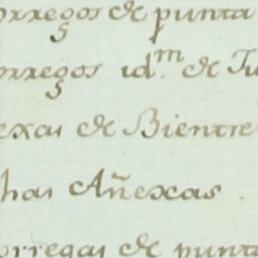 orregos de punta
orregos id.^m de Tu
exas de Bientre
has Añexas.
orregas de punta